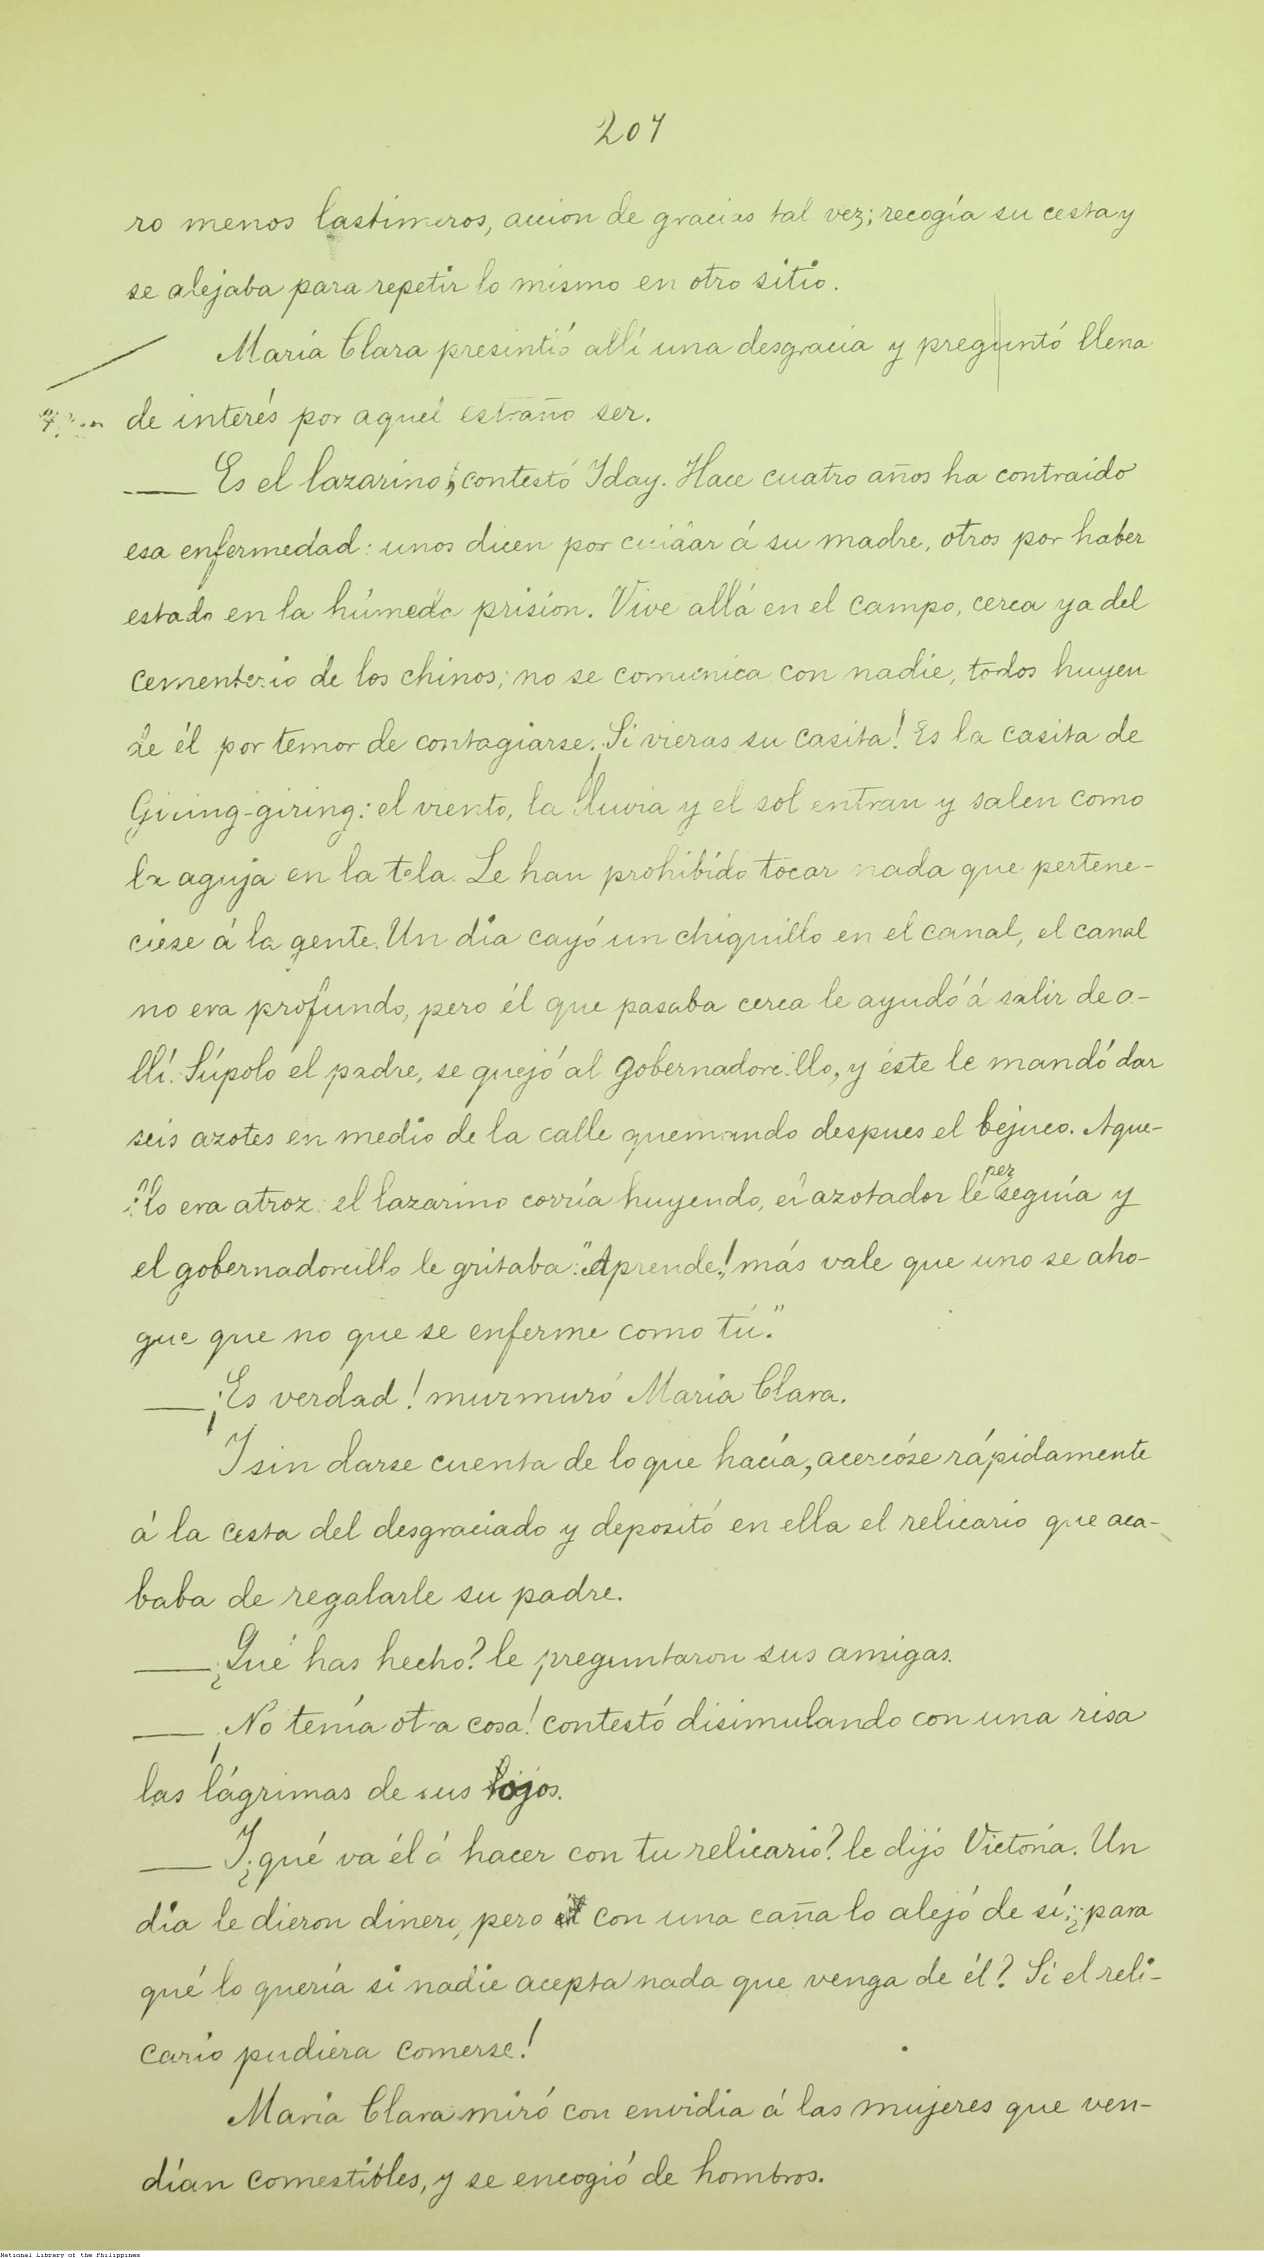 207
ro menos lastimeros, accion de gracias tal vez; recogía su cesta y
se alejaba para repetir lo mismo en otro sitio.
María Clara presintió allí una desgracia y preguntó llena
de interés por aquel estraño ser.
— Es el lazarino; contestó Iday. Hace cuatro años ha contraido
esa enfermedad: unos dicen por cuidar á su madre, otros por haber
estado en la húmeda prisión. Vive allá en el campo, cerca ya del
cementerio de los chinos; no se comunica con nadie, todos huyen
de él por temor de contagiarse. ¡Si vieras su casita! Es la casita de
Giring-giring: el viento, la lluvia y el sol entran y salen como
la aguja en la tela. Le han prohibido tocar nada que pertene-
ciese á la gente. Un día cayó un chiquillo en el canal, el canal
no era profundo, pero él que pasaba cerca le ayudó á salir de a-
llí. Súpolo el padre, se quejó al gobernadorcillo, y éste le mandó dar
seis azotes en medio de la calle quemando despues el bejuco. Aque-
llo era atroz: el lazarino corría huyendo, el azotador le perseguía y
el gobernadorcillo le gritaba: "Aprende! más vale que uno se aho-
gue que no que se enferme como tú."
— ¡Es verdad! murmuró María Clara.
Y sin darse cuenta de lo que hacía, acercóse rápidamente
á la cesta del desgraciado y depositó en ella el relicario que aca-
baba de regalarle su padre.
— ¿Qué has hecho? le preguntaron sus amigas.
— ¡No tenía otra cosa! contestó disimulando con una risa
las lágrimas de sus ojos.
— Y ¿qué va él á hacer con tu relicario? le dijo Victoria. Un
día le dieron dinero, pero con una caña lo alejó de sí: ¿para
qué lo quería si nadie acepta nada que venga de él? Si el reli-
cario pudiera comerse!
María Clara miró con envidia á las mujeres que ven-
dían comestibles, y se encogió de hombros.
National Library of the Philippines